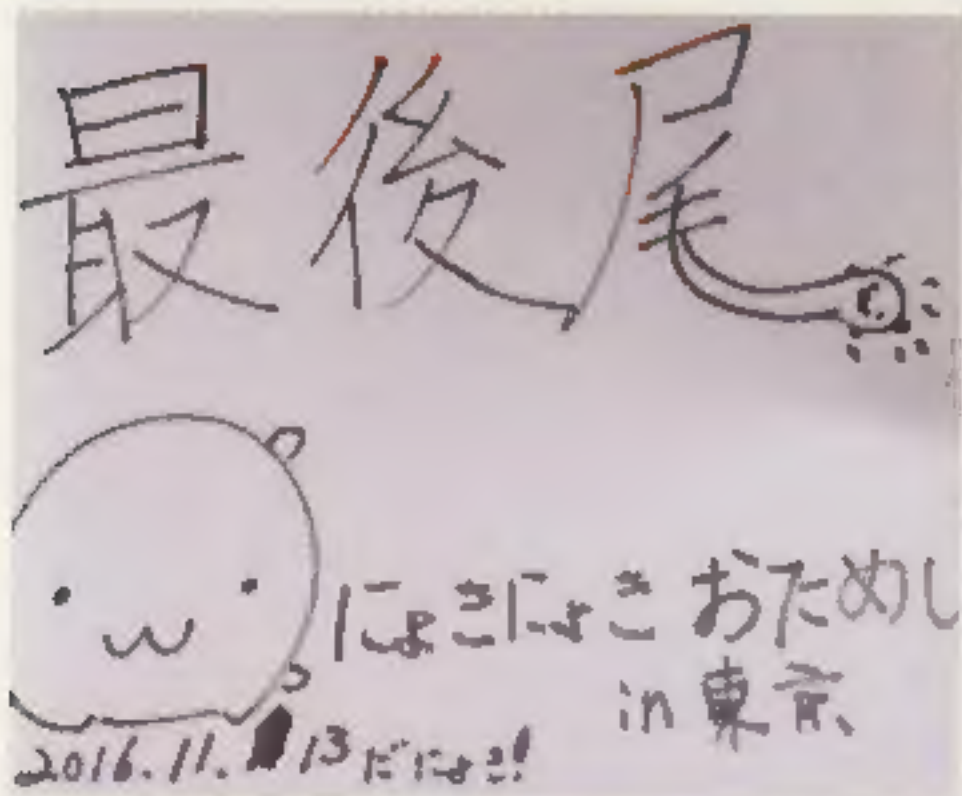 最後尾
にょきにょき おためし
in 東京
2016.11.13 だにょき!